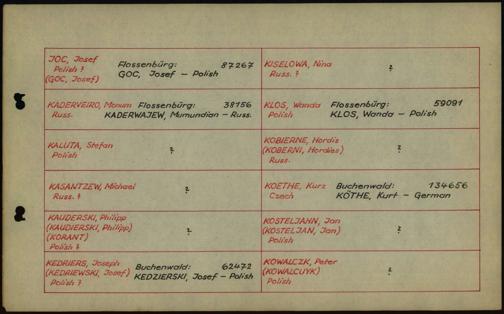 JOC, Josef
Polish ?
(GOC, Josef)
Flossenbürg: 87267
GOC, Josef - Polish
KISELOWA, Nina
Russ. ?
?
KADERVEIRO, Monum
Russ.
Flossenbürg: 38156
KADERWAJEW, Mumundian - Russ.
KLOS, Wanda
Polish
Flossenbürg: 59091
KLOS, Wanda - Polish
KALUTA, Stefan
Polish
?
KOBIERNE, Hordis
(KOBERNI, Hordies)
Russ.
?
KASANTZEW, Michael
Russ. ?
?
KOETHE, Kurz
Czech
Buchenwald: 134656
KÖTHE, Kurt - German
KAUDERSKI, Philipp
(KAUDIERSKI, Philipp)
(KORANT)
Polish ?
?
KOSTELJAHN, Jan
(KOSTELJAN, Jan)
Polish
?
KEDRIERS, Joseph
(KEDRIEWSKI, Josef)
Polish ?
Buchenwald: 62472
KEDZIERSKI, Josef - Polish
KOWALCZK, Peter
(KOWALCUYK)
Polish
?